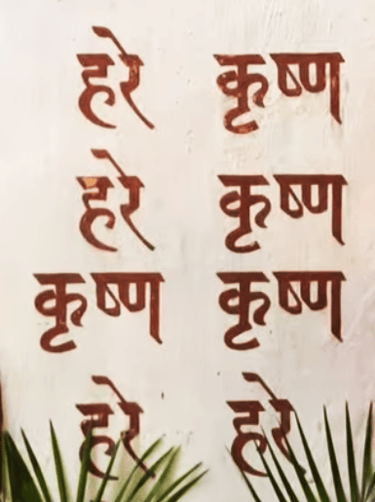 हरे कृष्ण
हरे कृष्ण
कृष्ण कृष्ण
हरे हरे